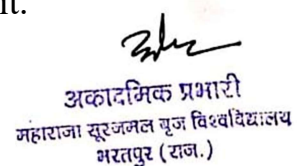 it.
अकादमिक प्रभारी
महाराजा सूरजमल बृज विश्वविद्यालय
भरतपुर (राज.)